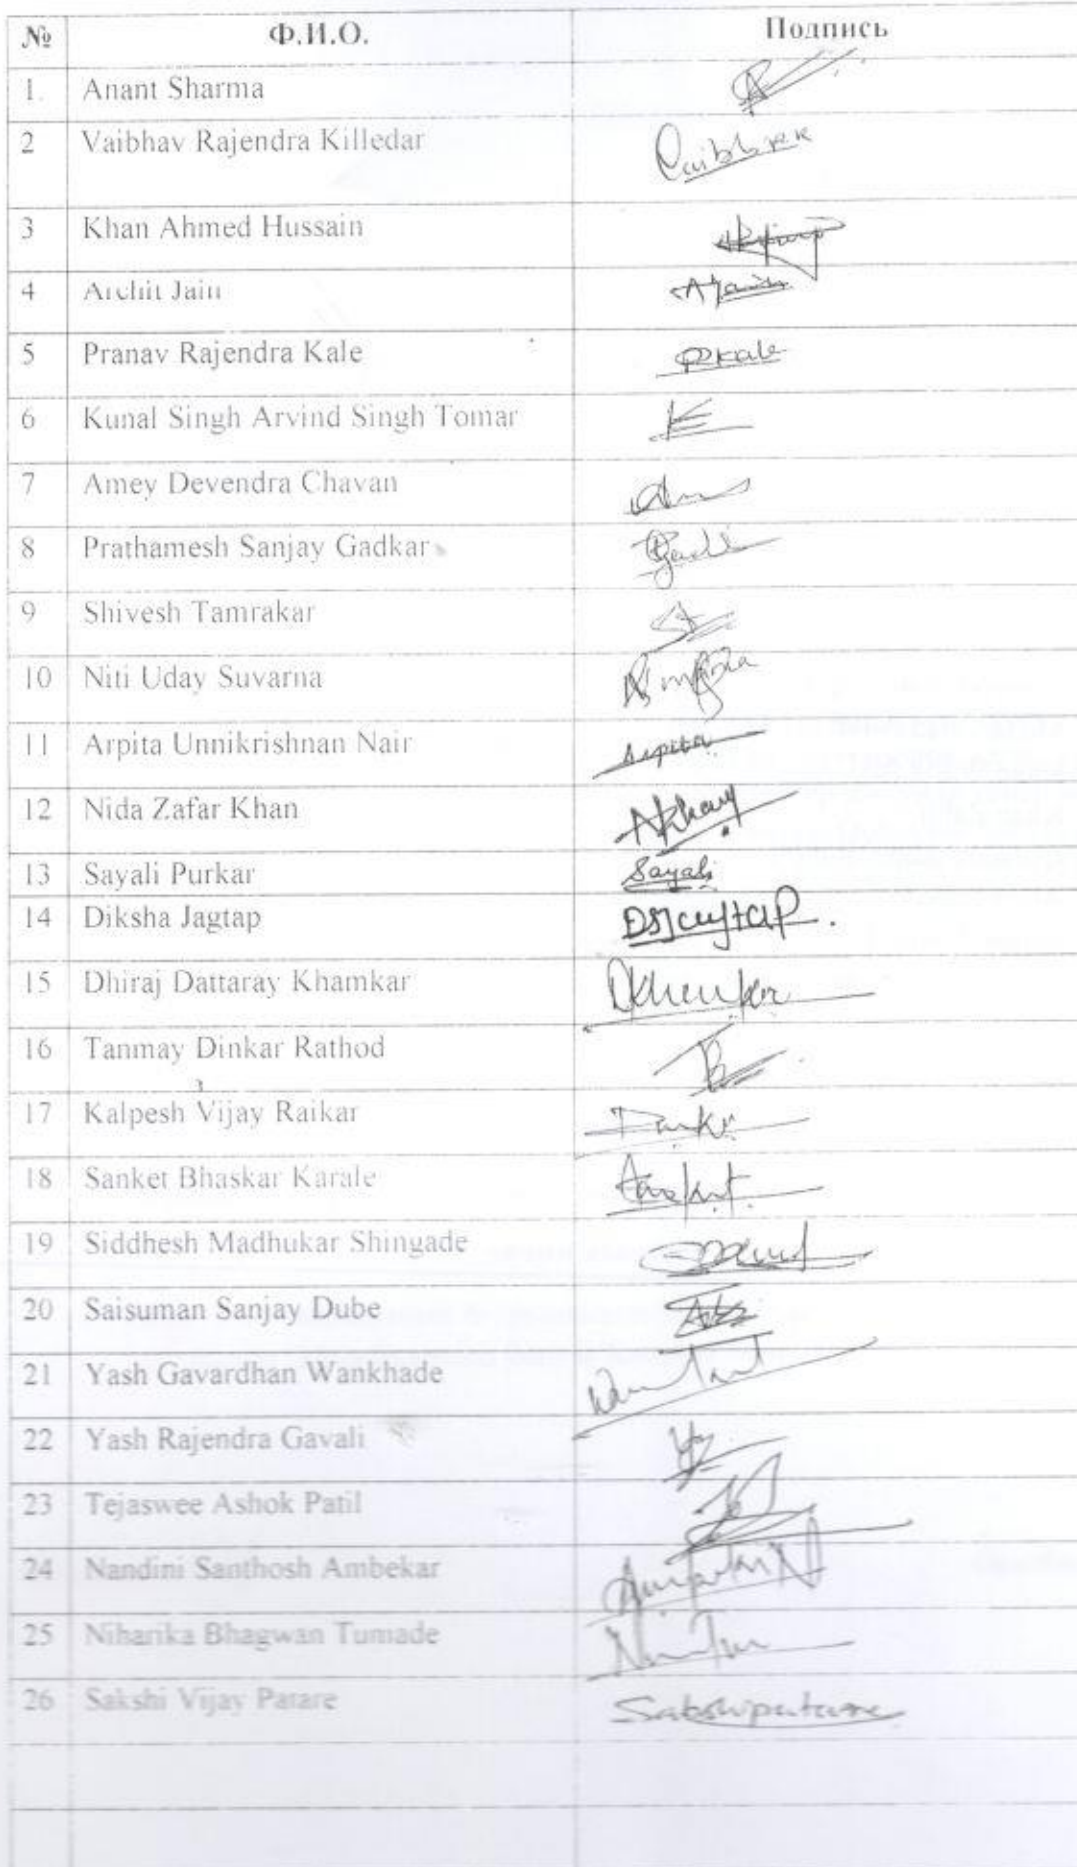 № Ф.И.О. Подпись
1. Anant Sharma
2 Vaibhav Rajendra Killedar
3 Khan Ahmed Hussain
4 Archit Jain AJain
5 Pranav Rajendra Kale PRKale
6 Kunal Singh Arvind Singh Tomar
7 Amey Devendra Chavan
8 Prathamesh Sanjay Gadkar
9 Shivesh Tamrakar
10 Niti Uday Suvarna
11 Arpita Unnikrishnan Nair Arpita
12 Nida Zafar Khan
13 Sayali Purkar Sayali
14 Diksha Jagtap DSJagtap.
15 Dhiraj Dattaray Khamkar
16 Tanmay Dinkar Rathod
17 Kalpesh Vijay Raikar
18 Sanket Bhaskar Karale
19 Siddhesh Madhukar Shingade
20 Saisuman Sanjay Dube
21 Yash Gavardhan Wankhade
22 Yash Rajendra Gavali
23 Tejaswee Ashok Patil
24 Nandini Santhosh Ambekar
25 Niharika Bhagwan Tumade
26 Sakshi Vijay Patare Sakshipatare